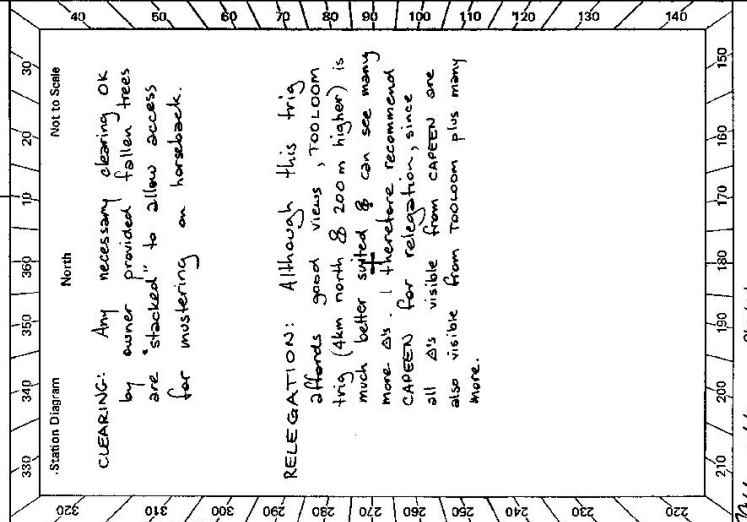 330 340 350 360 10 20 30
Station Diagram North Not to Scale
CLEARING: Any necessary clearing OK
by owner provided fallen trees
are "stacked" to allow access
for mustering on horseback.
RELEGATION: Although this trig
affords good views, TOOLOOM
trig (4km north & 200m higher) is
much better suited & can see many
more Δ's. I therefore recommend
CAPEEN for relegation, since
all Δ's visible from CAPEEN are
also visible from TOOLOOM plus many
more.
40
50
60
70
80
90
100
110
120
130
140
320
310
300
290
280
270
260
250
240
230
220
210 200 190 180 170 160 150